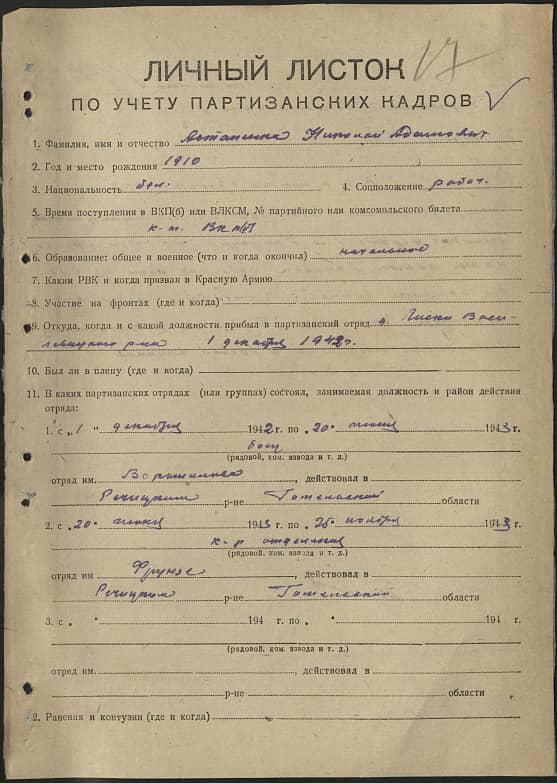 17
ЛИЧНЫЙ ЛИСТОК
ПО УЧЕТУ ПАРТИЗАНСКИХ КАДРОВ
1. Фамилия, имя и отчество Асташенко Николай Адамович
2. Год и место рождения 1910
3. Национальность бел. 4. Соцположение рабоч.
5. Время поступления в ВКП(б) или ВЛКСМ, № партийного или комсомольского билета
к-т. ВКП(б)
6. Образование: общее и военное (что и когда окончил) начальное
7. Каким РВК и когда призван в Красную Армию
8. Участие на фронтах (где и когда)
9. Откуда, когда и с какой должности прибыл в партизанский отряд д. Васи-
левицкого р-на 1 декабря 1942г.
10. Был ли в плену (где и когда)
11. В каких партизанских отрядах (или группах) состоял, занимаемая должность и район действия
отряда:
1. с „1" декабря 1942 г. по „20" июня 1943 г.
боец
(рядовой, ком. взвода и т. д.)
отряд им. Ворошилова, действовал в
Речицком р-не Гомельской области
2. с „20" июня 1943 г. по „25" ноября 1943 г.
к-р отделения
(рядовой, ком. взвода и т. д.)
отряд им Фрунзе, действовал в
Речицком р-не Гомельской области
3. с „ " 194 г. по „ " 194 г.
(рядовой, ком. взвода и т. д.)
отряд им., действовал в
р-не области
2. Ранения и контузии (где и когда)